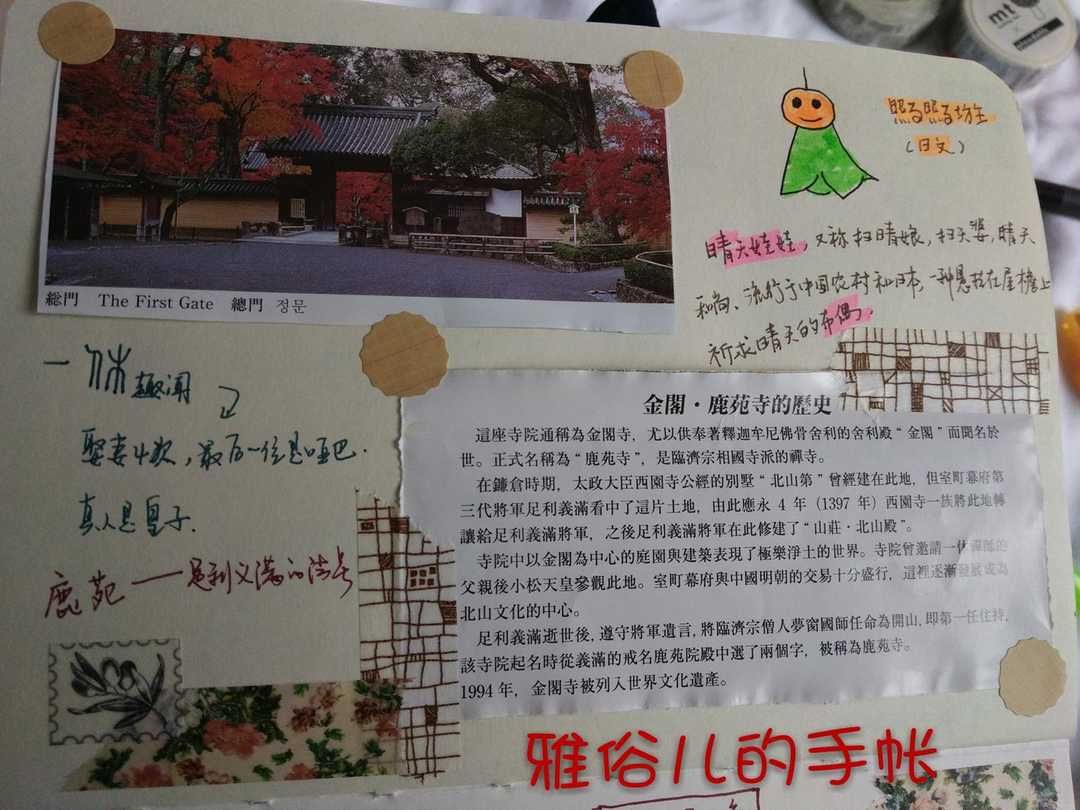 mt
総門 The First Gate 總門 정문
照る照る坊主
(日文)
晴天娃娃,又称扫晴娘,扫天婆,晴天
和尚、流行于中国农村和日本,一种悬挂在屋檐上
祈求晴天的布偶。
一休趣闻
娶妻少欢,最后一位是哑巴.
真人是皇子.
鹿苑——足利义满的法号
金閣・鹿苑寺的歷史
這座寺院通稱為金閣寺,尤以供奉著釋迦牟尼佛骨舍利的舍利殿“金閣”而聞名於
世。正式名稱為“鹿苑寺”,是臨濟宗相國寺派的禪寺。
在鎌倉時期,太政大臣西園寺公經的別墅“北山第”曾經建在此地,但室町幕府第
三代將軍足利義滿看中了這片土地,由此應永 4 年(1397 年)西園寺一族將此地轉
讓給足利義滿將軍,之後足利義滿將軍在此修建了“山莊・北山殿”。
寺院中以金閣為中心的庭園與建築表現了極樂淨土的世界。寺院曾邀請一休禪師的
父親後小松天皇參觀此地。室町幕府與中國明朝的交易十分盛行,這裡逐漸發展成為
北山文化的中心。
足利義滿逝世後,遵守將軍遺言,將臨濟宗僧人夢窗國師任命為開山,即第一任住持,
該寺院起名時從義滿的戒名鹿苑院殿中選了兩個字,被稱為鹿苑寺。
1994 年,金閣寺被列入世界文化遺產。
雅俗儿的手帐